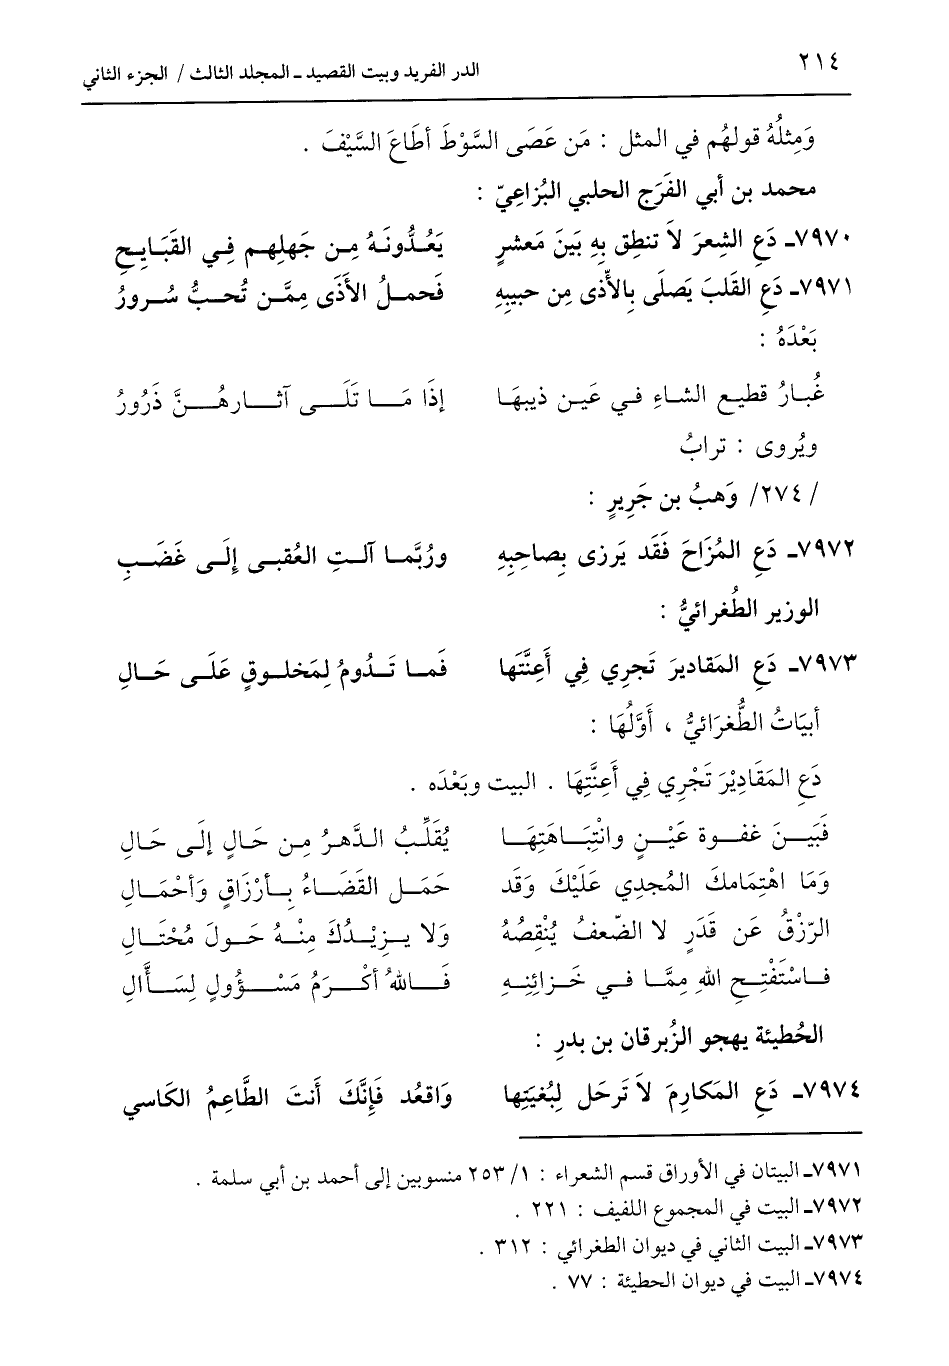 ٢١٤
الدر الفريد وبيت القصيد ـ المجلد الثالث / الجزء الثاني
وَمِثلُهُ قولهُم في المثل : مَن عَصَى السَّوْطَ أطَاعَ السَّيْفَ .
محمد بن أبي الفَرَج الحلبي البُزاعِيّ :
٧٩٧٠ـ دَعِ الشِعرَ لاَ تنطِق بِهِ بَينَ مَعشرٍ يَعُدُّونَهُ مِن جَهلِهم فِي القَبَايحِ
٧٩٧١ـ دَعِ القَلبَ يَصلَى بِالأذى مِن حبيبِهِ فَحملُ الأذَى مِمَّن تُحبُّ سُرورُ
بَعْدَهُ :
غُبارُ قطيع الشاءِ في عَين ذيبهَا إذَا مَا تَلَى آثارهُنَّ ذَرُورُ
ويُروى : ترابُ
/ ٢٧٤/ وَهبُ بن جَرِيرٍ :
٧٩٧٢ـ دَعِ المُزَاحَ فَقَد يَرزى بِصاحِبِهِ ورُبَّما آلتِ العُقبى إلَى غَضَبِ
الوزير الطُغرائيُّ :
٧٩٧٣ـ دَعِ المَقاديرَ تَجرِي فِي أَعِنَّتَها فَما تَدُومُ لِمَخلوقٍ عَلَى حَالِ
أبيَاتُ الطُّغرَائيُّ ، أَوَّلُهَا :
دَعِ المَقَادِيْرَ تَجْرِي فِي أَعِنَّتِهَا . البيت وبَعْدَه .
فَبَينَ غفوة عَيْنٍ وانْتِبَاهَتِهَا يُقَلِّبُ الدَّهرُ مِن حَالٍ إلَى حَالِ
وَمَا اهْتِمَامكَ المُجدِي عَلَيْكَ وَقَد حَمَل القَضَاءُ بِأرْزَاقٍ وَأحْمَالِ
الرّزْقُ عَن قَدَرٍ لا الضّعفُ يُنْقِصُهُ وَلا يزِيْدُكَ مِنْهُ حَولَ مُحْتَالِ
فاسْتَفْتِحِ اللهِ مِمَّا في خَزائِنِهِ فَاللهُ أكْرَمُ مَسْؤُولٍ لِسَأَّالِ
الحُطيئة يهجو الزُبرقان بن بدرِ :
٧٩٧٤ـ دَعِ المَكارِمَ لاَ تَرحَل لِبُغيَتِها وَاقعُد فَإنَّكَ أَنتَ الطَّاعِمُ الكَاسي
٧٩٧١ـ البيتان في الأوراق قسم الشعراء : ١/ ٢٥٣ منسوبين إلى أحمد بن أبي سلمة .
٧٩٧٢ـ البيت في المجموع اللفيف : ٢٢١ .
٧٩٧٣ـ البيت الثاني في ديوان الطغرائي : ٣١٢ .
٧٩٧٤ـ البيت في ديوان الحطيئة : ٧٧ .